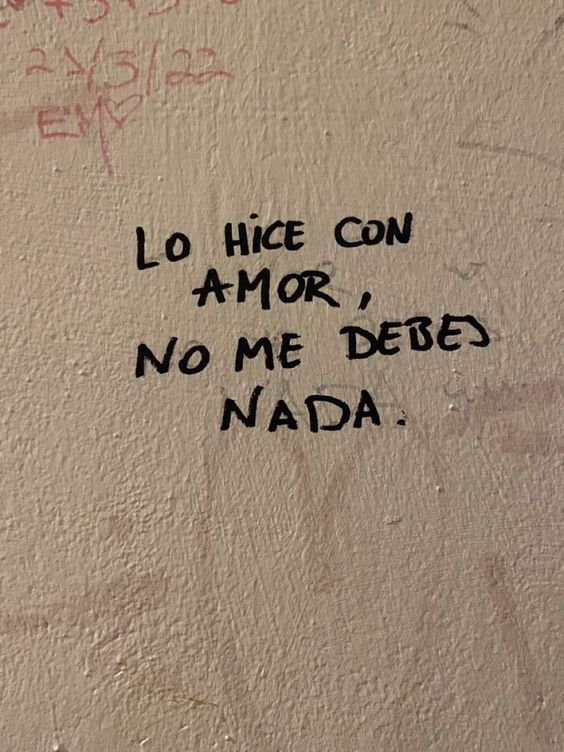 24/3/22
EM♡
LO HiCE CON
AMOR,
NO ME DEBES
NADA.